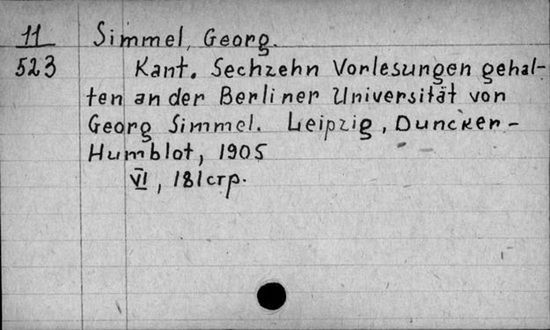 11 Simmel, Georg.
523 Kant. Sechzehn Vorlesungen gehal-
ten an der Berliner Universität von
Georg Simmel. Leipzig, Duncker-
Humblot, 1905
VI, 181стр.